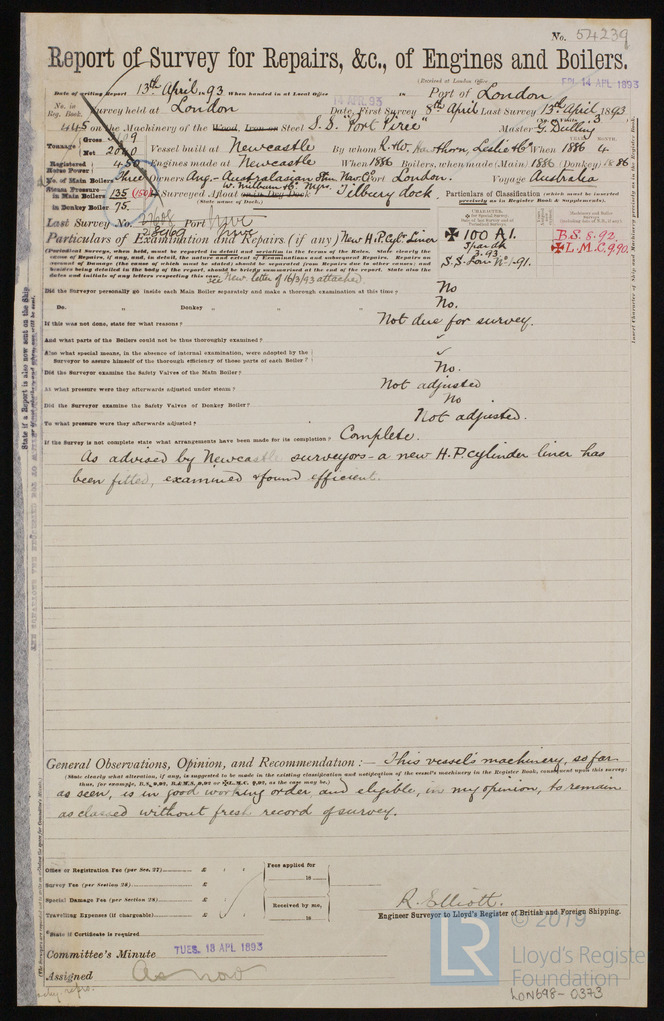 No. 54239
Report of Survey for Repairs, &c., of Engines and Boilers.
(Received at London Office FRI. 14 APL 1893
Date of writing Report 13th April 93 When handed in at Local Office 14 APL 93 Port of London
No. in Reg. Book. Survey held at London Date, First Survey 8th April Last Survey 13th April 1893
on the Machinery of the Wood, Iron or Steel S.S. "Port Pirie" Master G. Deilling
Tonnage Gross
Net 2000 Vessel built at Newcastle By whom R. & W. Hawthorn, Leslie & Co When 1886 4
Registered Horse Power 450 Engines made at Newcastle When 1886 Boilers, when made (Main) 1886 (Donkey) 86
No. of Main Boilers Three Owners Ang-Australasian Stm Nav Co Port London. Voyage Australia
Steam Pressure in Main Boilers 135 (150) Surveyed Afloat or in Dry Dock Tilbury dock.
W. Milburn & Co. Mgrs.
(State name of Dock.)
in Donkey Boiler 75.
Particulars of Classification (which must be inserted precisely as in Register Book & Supplements).
Last Survey No. Port
Particulars of Examination and Repairs (if any) New H.P. Cyl. Liner
100 A1.
Spar dk
3.93
S.S. Lon No 1-91.
B.S. 5.92
L.M.C. 9.90.
(Periodical Surveys, when held, must be reported in detail and seriatim in the terms of the Rules. State clearly the
cause of Repairs, if any, and, in detail, the nature and extent of Examinations and subsequent Repairs. Repairs on
account of Damage (the cause of which must be stated) should be separated from Repairs due to other causes; and
besides being detailed in the body of the report, should be briefly summarised at the end of the report. State also the
dates and initials of any letters respecting this case.
see New. letter of 16/3/93 attached
Did the Surveyor personally go inside each Main Boiler separately and make a thorough examination at this time? No
Do. " Donkey " " " No.
If this was not done, state for what reasons? Not due for survey.
And what parts of the Boilers could not be thus thoroughly examined?
Also what special means, in the absence of internal examination, were adopted by the
Surveyor to assure himself of the thorough efficiency of those parts of each Boiler?
Did the Surveyor examine the Safety Valves of the Main Boiler? No.
At what pressure were they afterwards adjusted under steam? Not adjusted
Did the Surveyor examine the Safety Valves of Donkey Boiler? No
To what pressure were they afterwards adjusted? Not adjusted.
If the Survey is not complete state what arrangements have been made for its completion? Complete.
As advised by Newcastle surveyors - a new H.P cylinder liner has
been fitted, examined & found efficient.
General Observations, Opinion, and Recommendation :— This vessel's machinery, so far
(State clearly what alteration, if any, is suggested to be made in the existing classification and notification of the vessel's machinery in the Register Book, consequent upon this survey;
as seen, is in good working order and eligible, in my opinion, to remain
as classed without fresh record of survey.
Office or Registration Fee (per Sec. 27) £
Survey Fee (per Section 28) £
Special Damage Fee (per Section 28) £
Travelling Expenses (if chargeable) £
Fees applied for
18
Received by me,
18
R. Elliott.
Engineer Surveyor to Lloyd's Register of British and Foreign Shipping.
State if Certificate is required
Committee's Minute TUES. 18 APL 1893
Assigned As now
© 2019
LR
Lloyd's Register
Foundation
LON698-0373